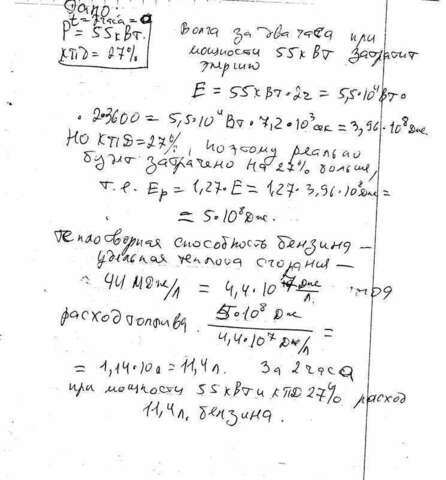 Дано:
t = 2 часа =
P = 55 кВт.
КПД = 27%
Волга за два часа при
мощности 55 кВт затратит
энергию
E = 55 кВт · 2ч = 5,5·10⁴ Вт ·
· 2·3600 = 5,5·10⁴ Вт · 7,2·10³ сек = 3,96·10⁸ Дж
Но КПД = 27%, поэтому реально
будет затрачено на 27% больше,
т.е. Eр = 1,27·E = 1,27·3,96·10⁸ Дж =
= 5·10⁸ Дж.
Теплотворная способность бензина –
удельная теплота сгорания –
44 МДж/л = 4,4·10⁷ Дж/л.
расход топлива 5·10⁸ Дж / 4,4·10⁷ Дж/л =
= 1,14·10 = 11,4 л. За 2 часа
при мощности 55 кВт и КПД 27% расход
11,4 л. бензина.